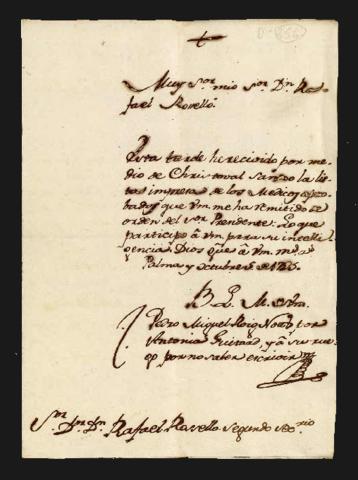 +
Muy Sor mio Sor Dn Ra-
fael Rovelló
Esta tarde he recivido por me-
dio de Christoval la lis
ta impresa de los Medicos apro-
bados que Vm. me ha remitido de
orden del Sor Presidente: Lo que
participo â Vm. para su inteli-
gencia Dios gûe â Vm. ms. as
Palma y octubre de
B. L. M. de Vm.
Pedro Miguel Roig Notº por
Antonia Guitard, y â su rue-
go por no saber escrivir
Sor Dn Dn Rafael Rovello segundo Secrio